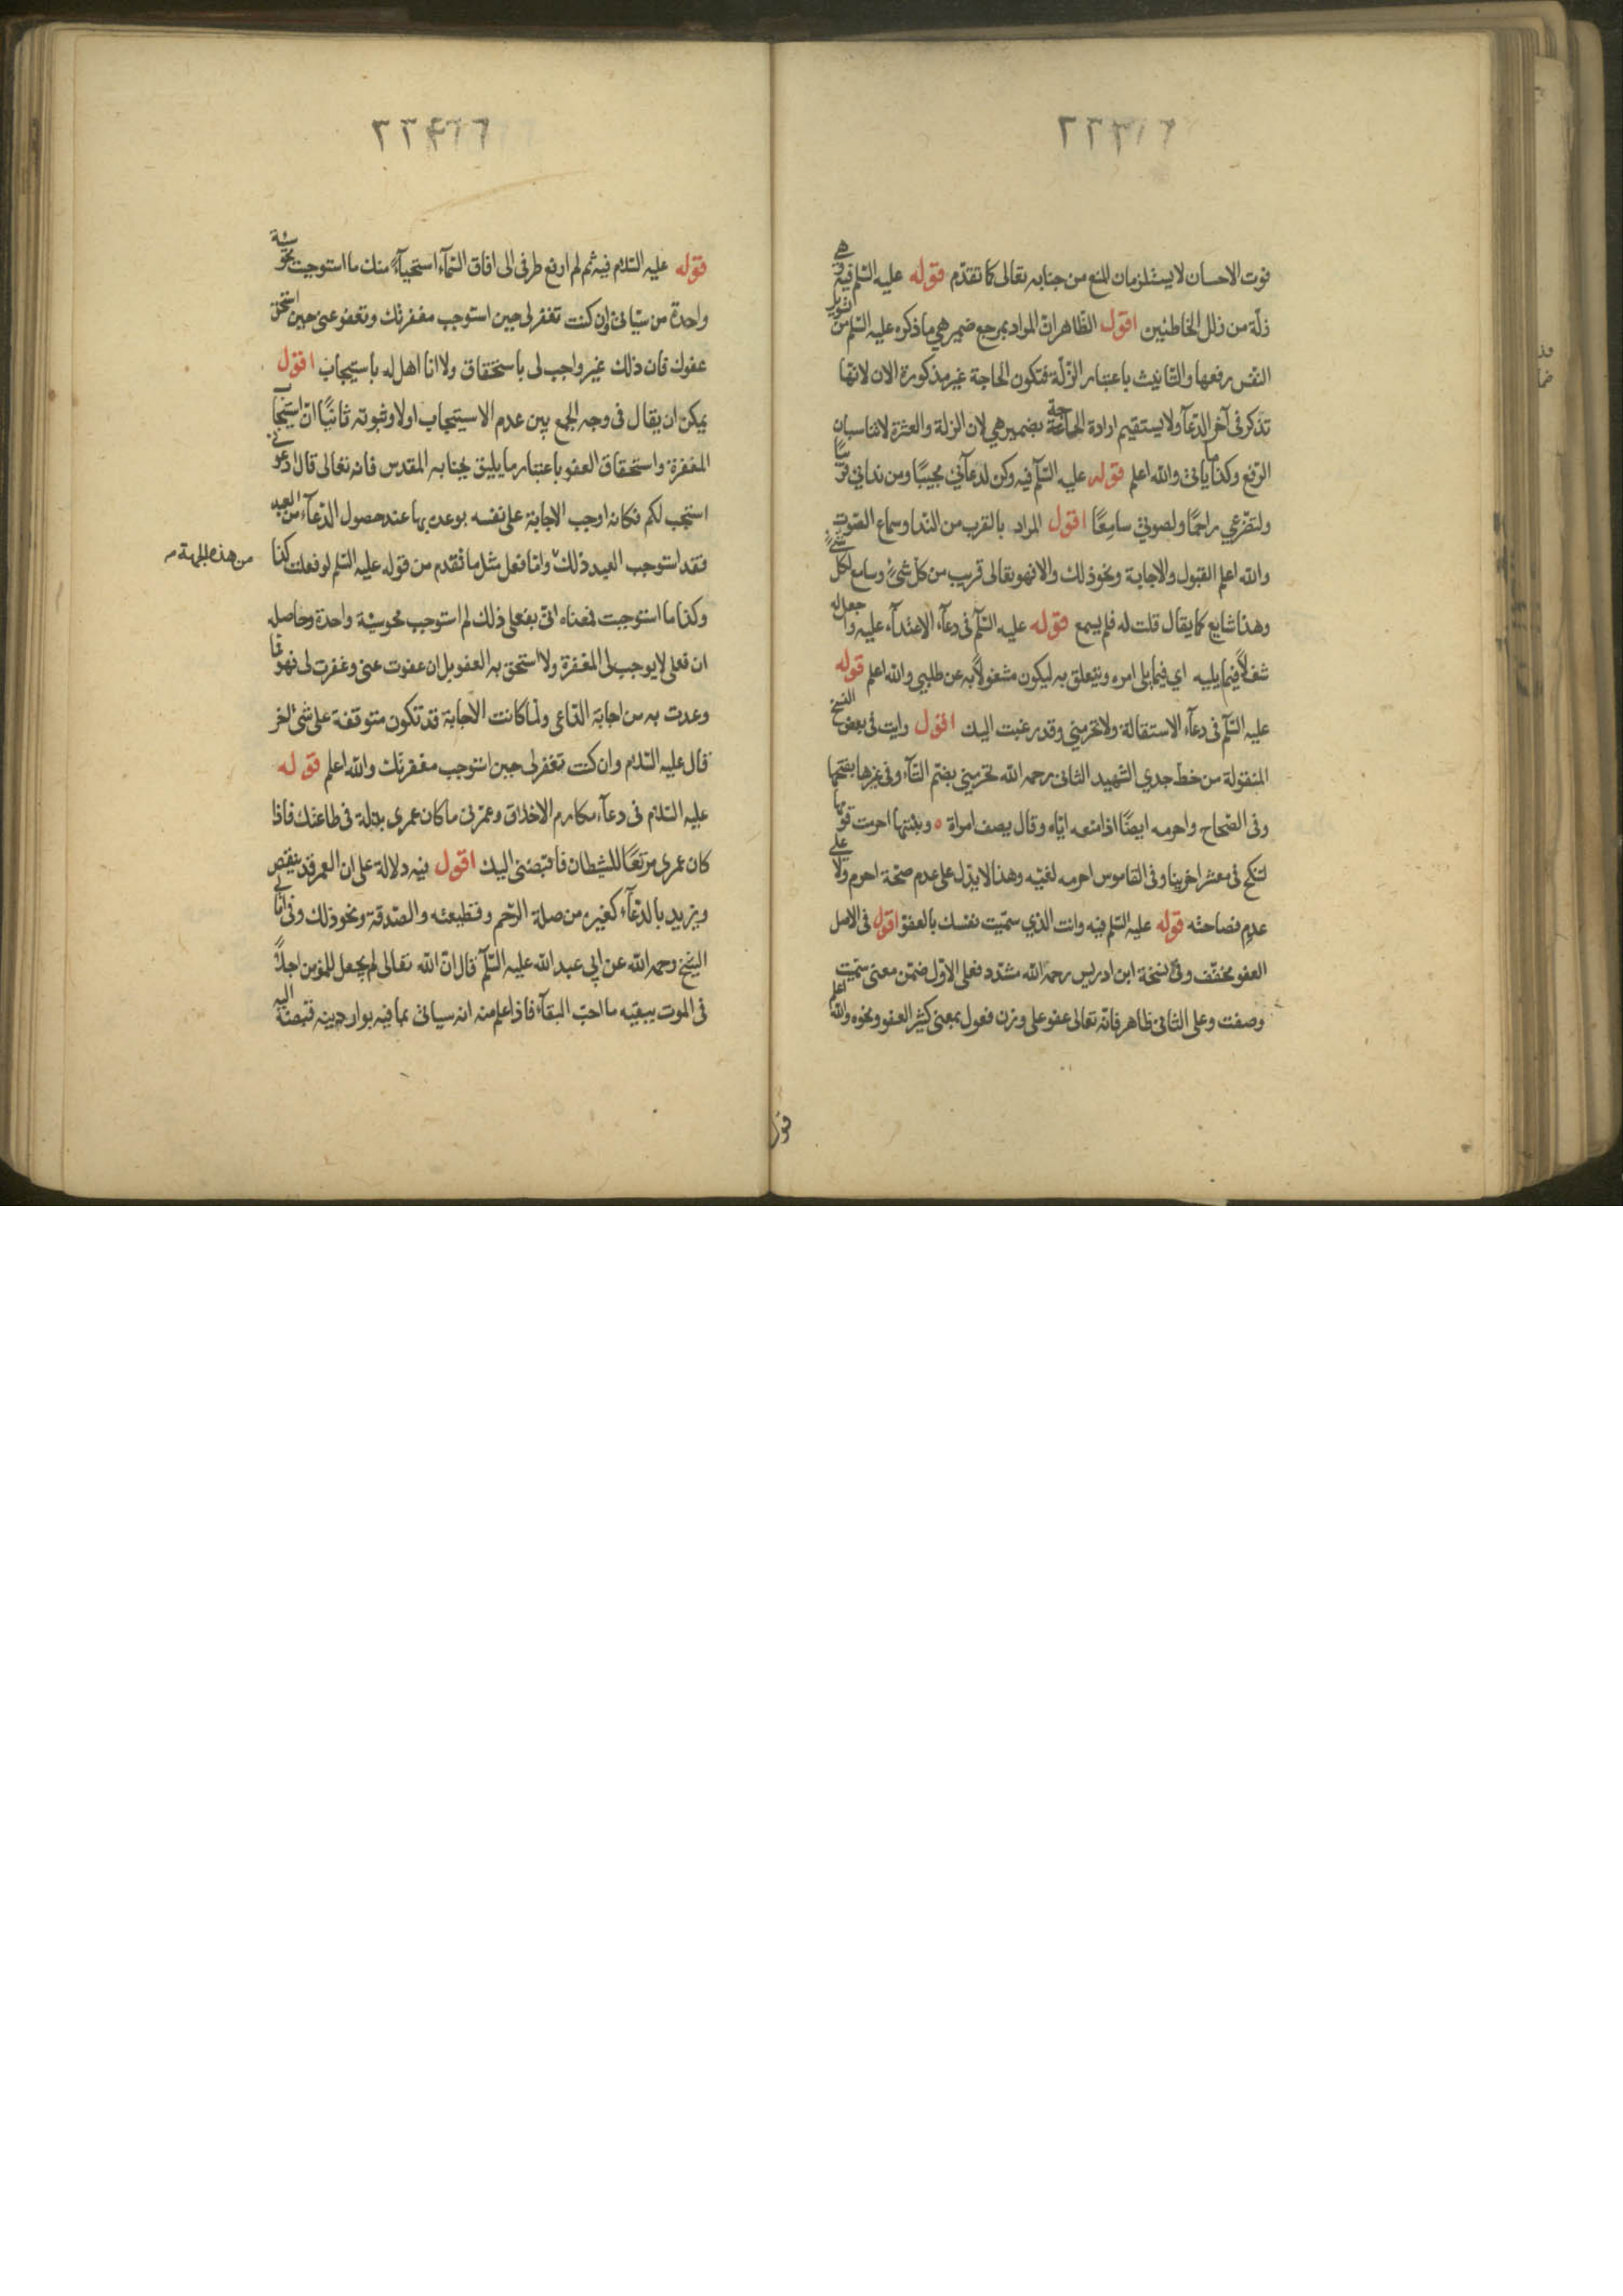 فوت الاحسان لا يستلزمان المنع من جنابه تعالى كما تقدّم قوله عليه السّلم فيه وهي
زلّة من زلل الخاطئين اقول الظاهر انّ المراد بمرجع ضمير هي ما ذكره عليه السّلم من تسويل
النفس رفعها والتانيث باعتبار الزلّة فتكون الحاجة غير مذكورة الان لانها
تذكر في آخر الدعآ ولا يستقيم ارادة الحاجة بضمير هي لان الزلة والعثرة لا تناسبان
الرفع وكذا ما ياتي والله اعلم قوله عليه السّلم فيه وكن لدعآئي مجيبًا ومن ندائي قريبًا
ولتضرّعي راحمًا ولصوتي سامعًا اقول المراد بالقرب من الندا وسماع الصّوت
والله اعلم القبول والاجابة ونحو ذلك والا فهو تعالى قريب من كل شئ وسامع لكل شئ
وهذا شايع كما يقال قلت له فلم يسمع قوله عليه السّلم في دعآء الاعتدآء عليه واجعل له
شغلًا فيما يليه اي فيما يلي امره ويتعلق به ليكون مشغولًا به عن طلبي والله اعلم قوله
عليه السّلم في دعآء الاستقالة ولا تحرمني وقد رغبت اليك اقول رايت في بعض النسخ
المنقولة من خط جدي الشهيد الثاني رحمه الله تحرمني بضمّ التآء وفي غيرها بفتحها
وفي الصّحاح واحرمه ايضًا اذا منعه ايّاه وقال يصف امراة ٥ ونبئتها احرمت قومها
لتنكح في معشر اخرينا وفي القاموس احرمه لغيّه وهذا لا يدّل على عدم صحّة احرم ولا على
عدم فصاحته قوله عليه السّلم فيه وانت الذي سمّيت نفسك بالعفوّ اقول في الاصل
العفو مخفّف وفي نسخة ابن ادريس رحمه الله مشدّد فعلى الاوّل ضمّن معنى سمّيت
وصفت وعلى الثاني ظاهر فانّه تعالى عفو على وزن فعول بمعنى كثير العفو ونحوه والله اعلم
قوله
قوله عليه السّلام فيه ثم لم ارفع طرفي الى افاق السّمآء استحيآءً منك ما استوجبت محو سيّئة
واحدة من سيّاتي وان كنت تغفر لي حين استوجب مغفرتك وتعفو عني حين استحق
عفوك فان ذلك غير واجب لي باستحقاق ولا انا اهل له باستيجاب اقول
يمكن ان يقال في وجه الجمع بين عدم الاستيجاب اولا وثبوته ثانيًا انّ استيجاب
المغفرة واستحقاق العفو باعتبار ما يليق بجنابه المقدس فانه تعالى قال ادعوني
استجب لكم فكانه اوجب الاجابة على نفسه بوعده بها عند حصول الدّعآء من العبد
فقد استوجب العبد ذلك وانا فعل مثل ما تقدم من قوله عليه السّلم لو فعلت كذا
من هذه الجهة
وكذا ما استوجبت فمعناه انّي بفعلي ذلك لم استوجب محو سيّئة واحدة وحاصله
ان فعلي لا يوجب لي المغفرة ولا استحق به العفو بل ان عفوت عني وغفرت لي فهو ممّا
وعدت به من اجابة الدّاعي ولما كانت الاجابة قد تكون متوقفة على شئ اخر
قال عليه السّلام وان كنت تغفر لي حين استوجب مغفرتك والله اعلم قوله
عليه السّلام في دعآء مكارم الاخلاق وعمّرني ما كان عمري بذلة في طاعتك فاذا
كان عمري مرتعًا للشيطان فاقبضني اليك اقول فيه دلالة على ان العمر قد ينقص
ويزيد بالدّعآء كغيره من صلة الرّحم وقطيعته والصّدقة ونحو ذلك وفي امالي
الشيخ رحمه الله عن ابي عبد الله عليه السّلم قال انّ الله تعالى لم يجعل للمؤمن اجلًا
في الموت يبقيه ما احبّ البقآء فاذا علم منه انه سياتي بما فيه بوار دينه قبضه اليه